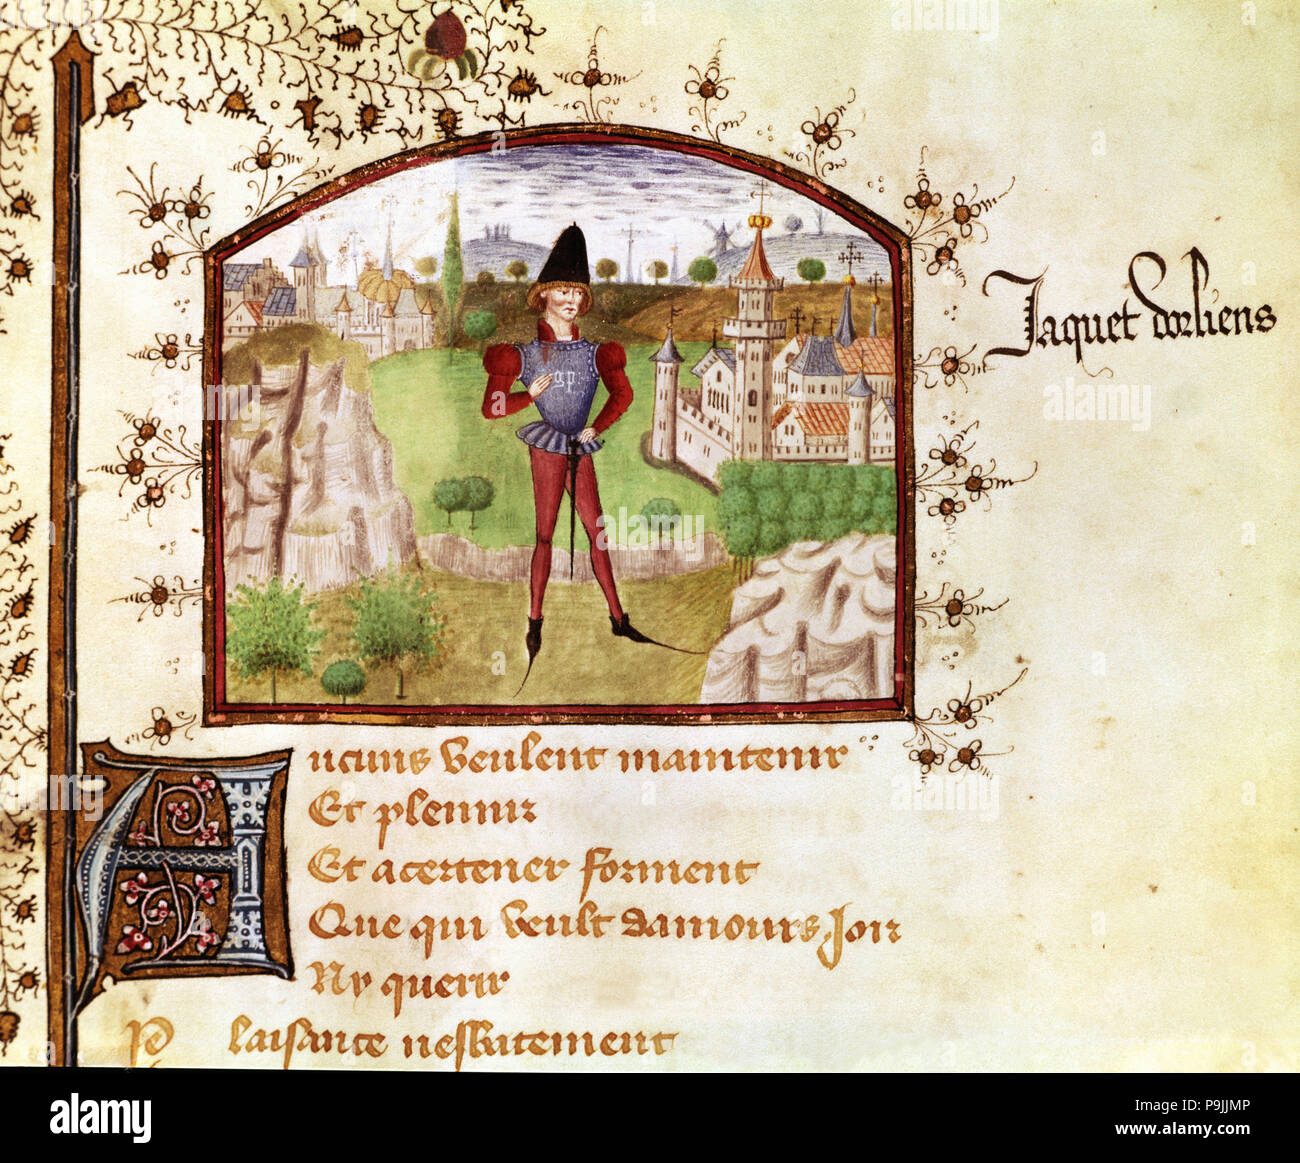 Jaquet dorliens
gp
Aucuns veulent maintenir
Et plennir
Et acertener forment
Que qui veult damours Joir
Ny querir
Plaisance nesbatement
alamy
Image ID: P9JJMP
www.alamy.com